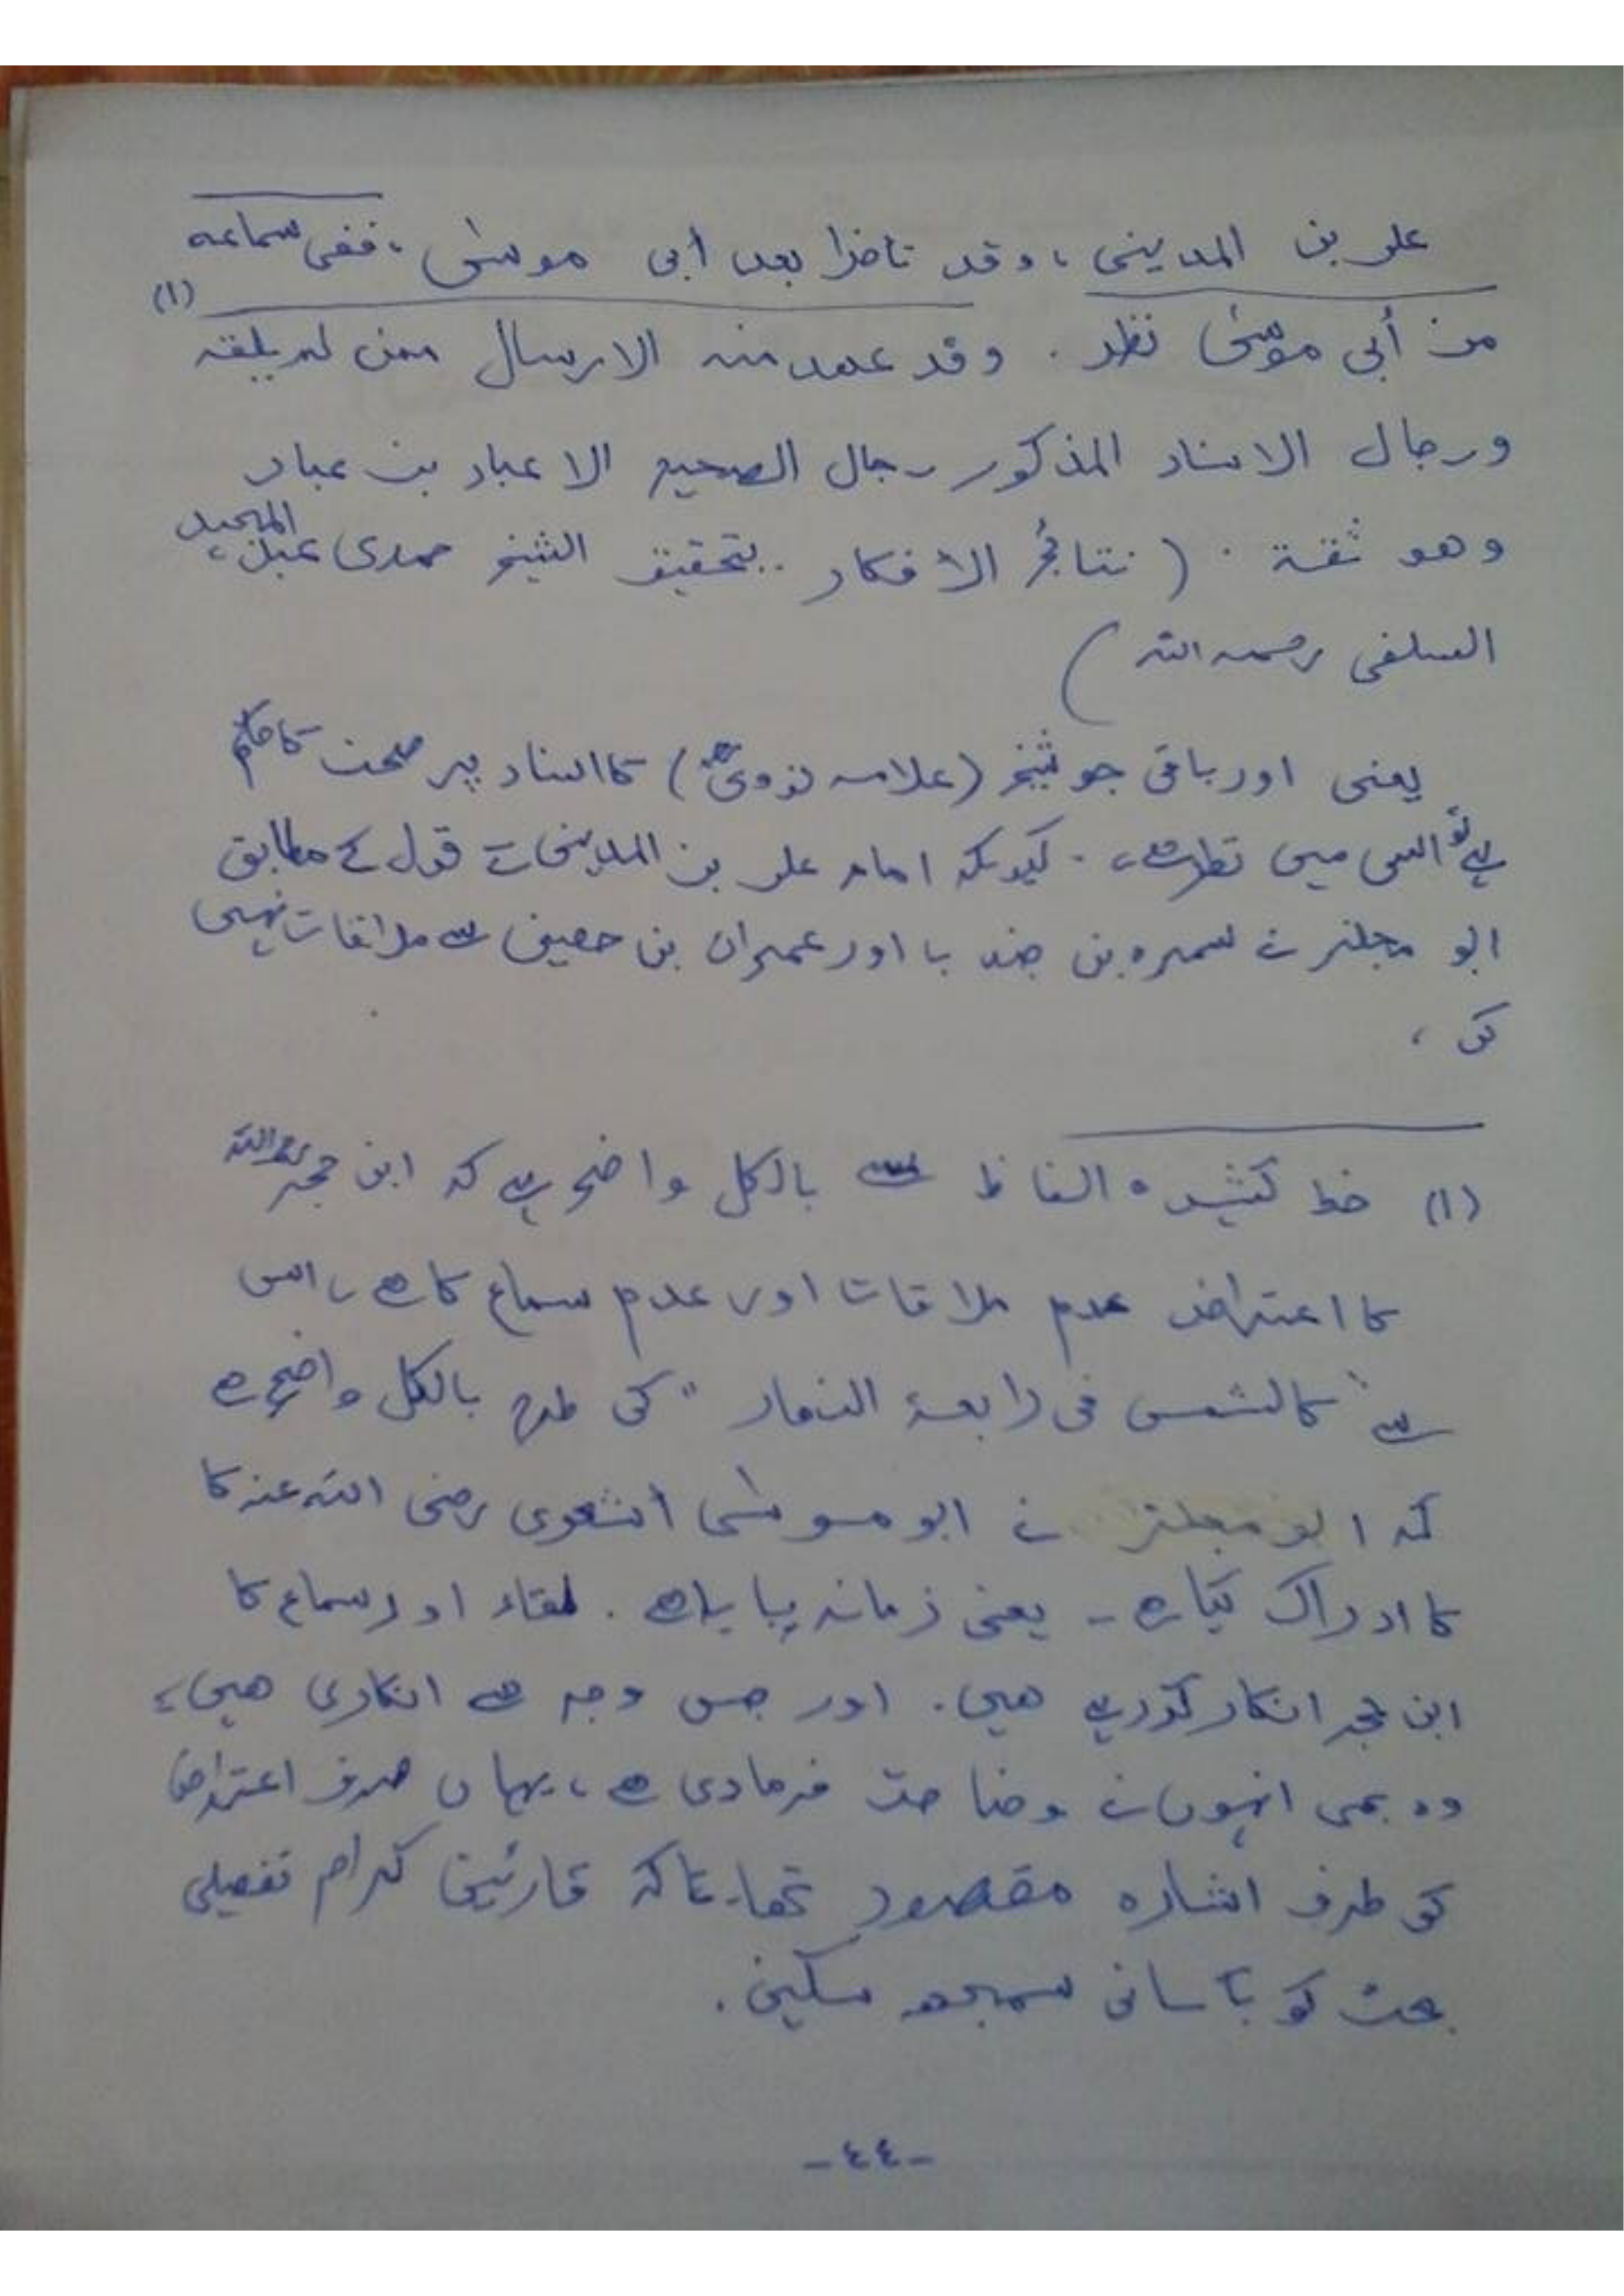 علی بن المدینی، وقد تاخرا بعد أبی موسیٰ، ففی سماعه
من أبی موسیٰ نظر. وقد عهد منه الارسال ممن لم یلقه (١)
ورجال الاسناد المذکور رجال الصحیح الا عباد بن عباد
وهو ثقة. (نتائج الأفکار.. بتحقیق الشیخ حمدی عبد المجید
السلفی رحمه الله)
یعنی اور باقی جو شیخ (علامہ نووی) کا اسناد پر صحت کا حکم
ہے تو اس میں نظر ہے، کیونکہ امام علی بن المدینی کے قول کے مطابق
ابو مجلز نے سمرہ بن جندب اور عمران بن حصین سے ملاقات نہیں
کی،
(١) خط کشیدہ الفاظ سے بالکل واضح ہے کہ ابن حجر رحمہ اللہ
کا اعتراض عدم ملاقات اور عدم سماع کا ہے، اس
سے "کالشمس فی رابعة النهار" کی طرح بالکل واضح ہے
کہ ابو مجلز نے ابو موسیٰ أشعری رضی اللہ عنہ کا
کا ادراک کیا ہے - یعنی زمانہ پایا ہے. لقاء اور سماع کا
ابن حجر انکار کر رہے ہیں. اور جس وجہ سے انکاری ہیں،
وہ بھی انہوں نے وضاحت فرما دی ہے، یہاں صرف اعتراض
کو طرف اشارہ مقصود تھا، تاکہ قارئین کرام تفصیلی
بحث کو بآسانی سمجھ سکیں.
-٤٤-